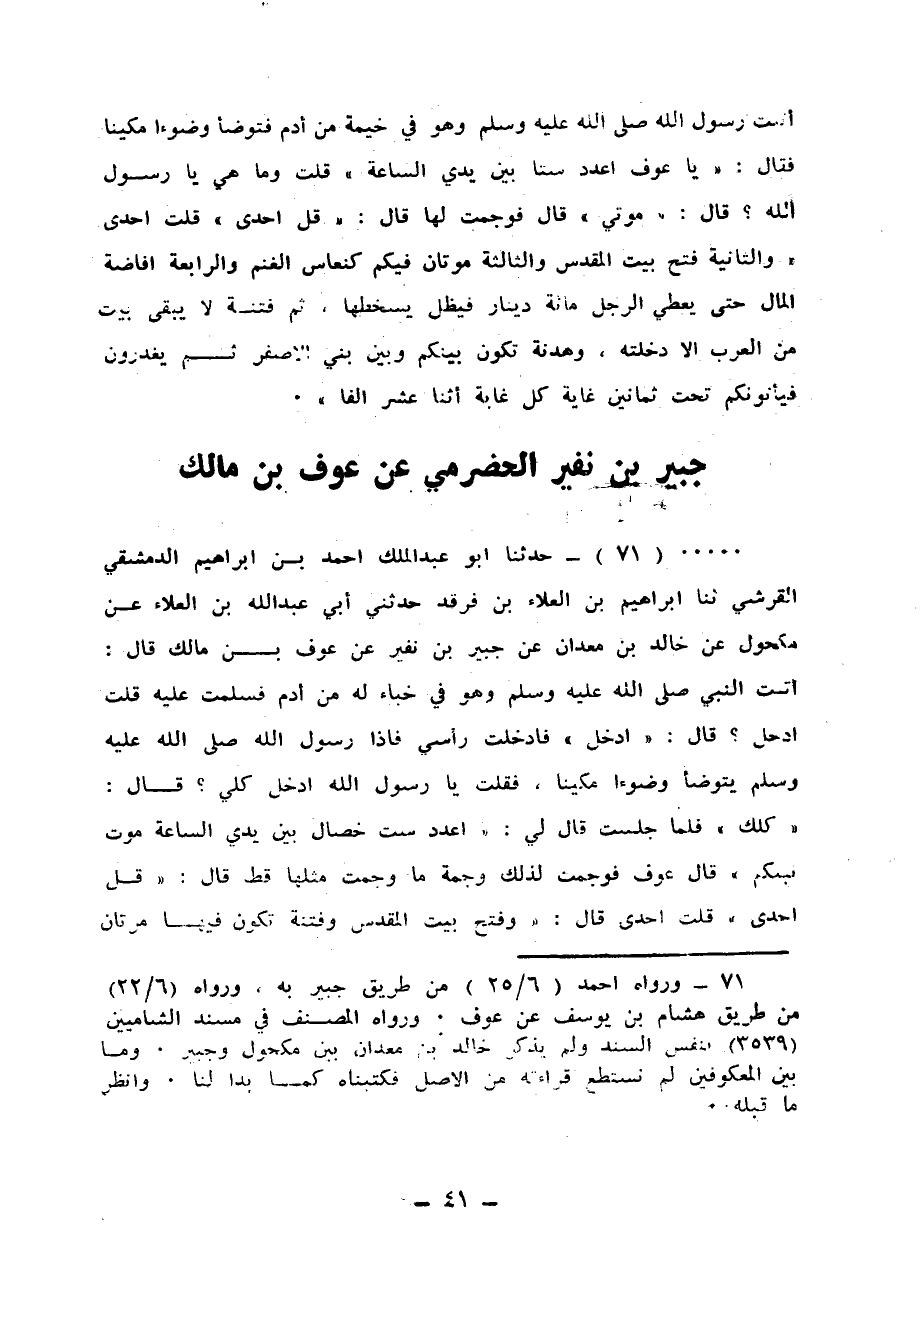 أتيت رسول الله صلى الله عليه وسلم وهو في خيمة من أدم فتوضأ وضوءا مكينا
فقال : « يا عوف اعدد ستا بين يدي الساعة » قلت وما هي يا رسول
الله ؟ قال : « موتي » قال فوجمت لها قال : « قل احدى » قلت احدى
« والثانية فتح بيت المقدس والثالثة موتان فيكم كنعاس الغنم والرابعة افاضة
المال حتى يعطي الرجل مائة دينار فيظل يسخطها ، ثم فتنة لا يبقى بيت
من العرب الا دخلته ، وهدنة تكون بينكم وبين بني الاصفر ثم يغدرون
فيأتونكم تحت ثمانين غاية كل غاية أثنا عشر الفا » ٠
جبير بن نفير الحضرمي عن عوف بن مالك
٠٠٠٠٠ ( ٧١ ) ــ حدثنا ابو عبدالملك احمد بن ابراهيم الدمشقي
القرشي ثنا ابراهيم بن العلاء بن فرقد حدثني أبي عبدالله بن العلاء عن
مكحول عن خالد بن معدان عن جبير بن نفير عن عوف بن مالك قال :
أتيت النبي صلى الله عليه وسلم وهو في خباء له من أدم فسلمت عليه قلت
ادخل ؟ قال : « ادخل » فادخلت رأسي فاذا رسول الله صلى الله عليه
وسلم يتوضأ وضوءا مكينا ، فقلت يا رسول الله ادخل كلي ؟ قال :
« كلك » فلما جلست قال لي : « اعدد ست خصال بين يدي الساعة موت
نبيكم » قال عوف فوجمت لذلك وجمة ما وجمت مثلها قط قال : « قل
احدى » قلت احدى قال : « وفتح بيت المقدس وفتنة تكون فيها مرتان
٧١ ــ ورواه احمد ( ٢٥/٦ ) من طريق جبير به ، ورواه (٢٢/٦)
من طريق هشام بن يوسف عن عوف ٠ ورواه المصنف في مسند الشاميين
(٣٥٣٩) بنفس السند ولم يذكر خالد بن معدان بين مكحول وجبير ٠ وما
بين المعكوفين لم نستطع قراءته من الاصل فكتبناه كما بدا لنا ٠ وانظر
ما قبله ٠٠
ــ ٤١ ــ